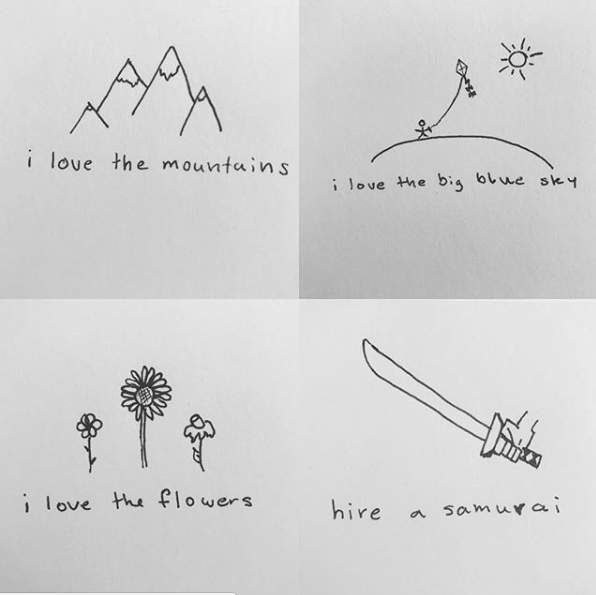 i love the mountains
i love the big blue sky
i love the flowers
hire a samurai